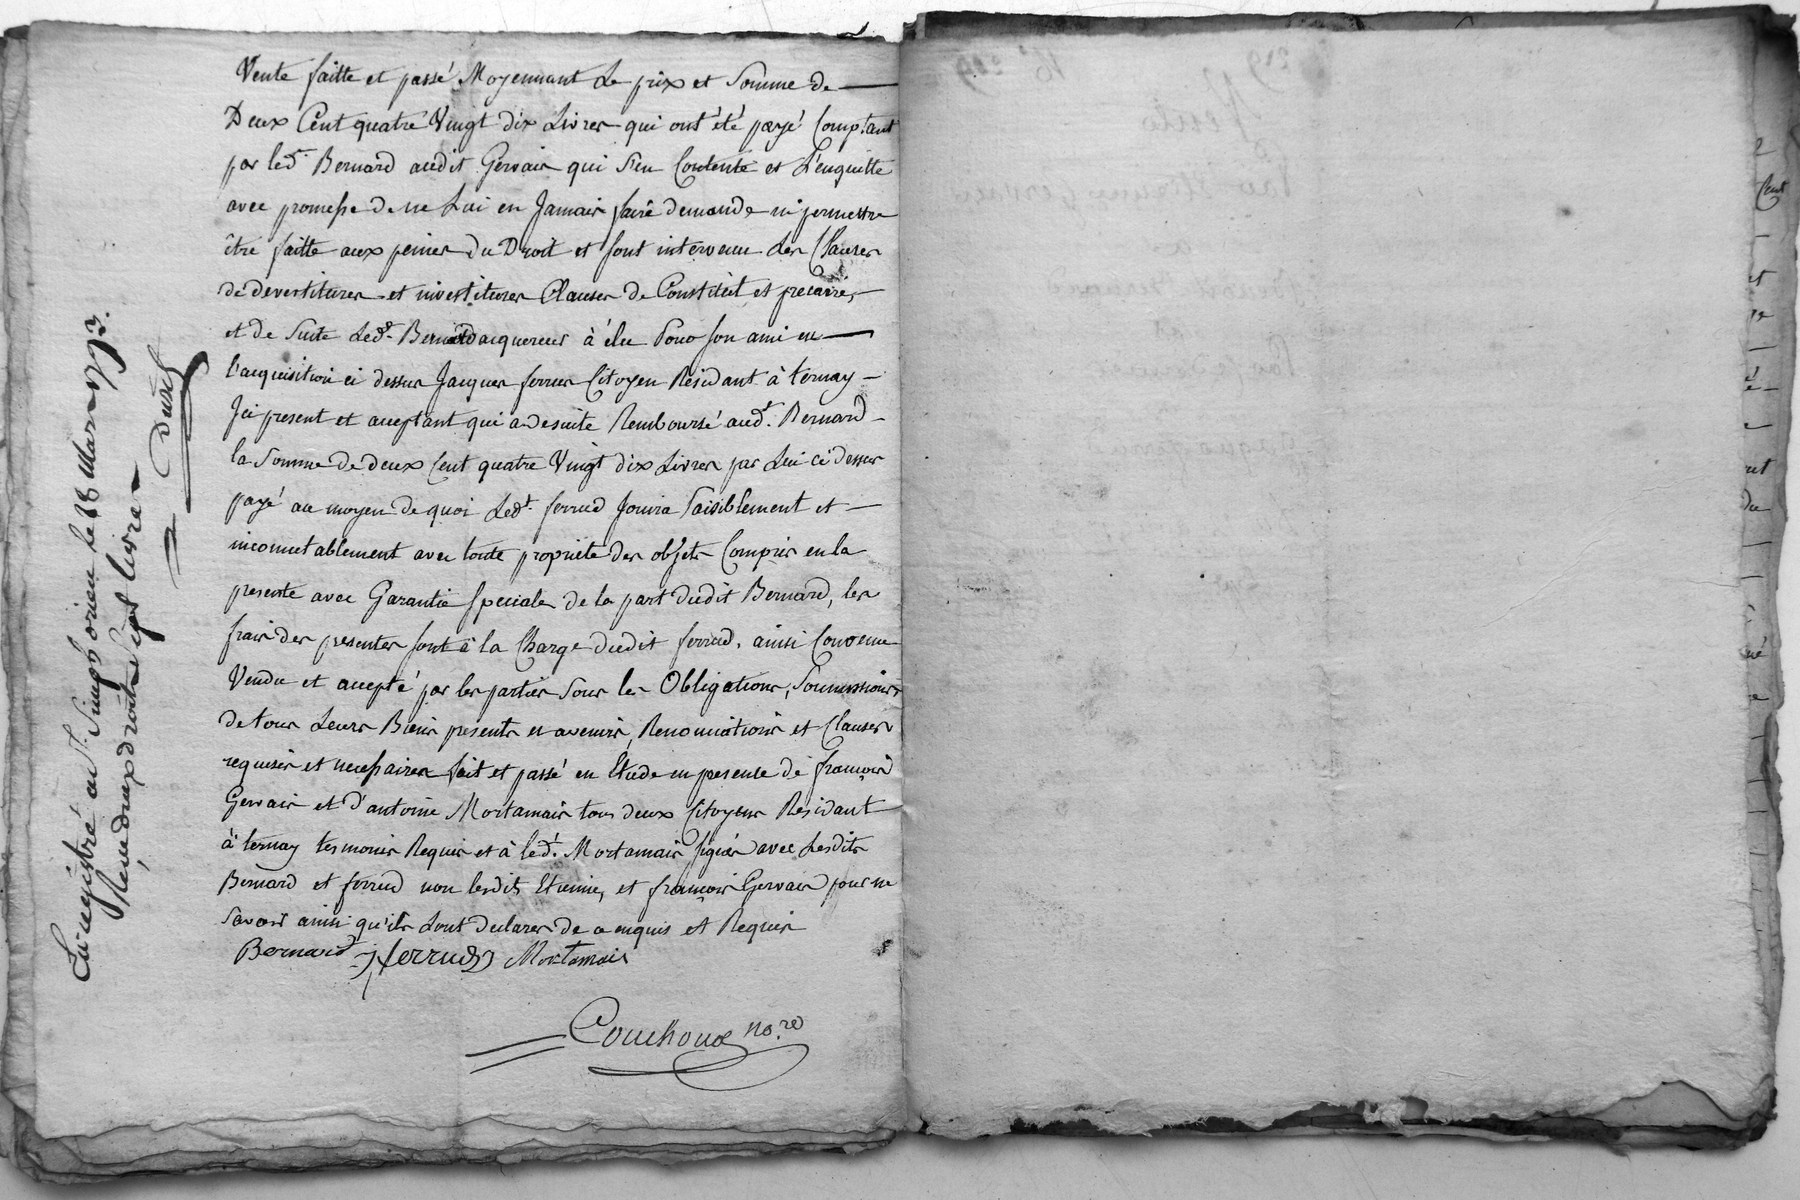 Vente faitte et passé Moyennant Le prix et Somme de
Deux Cent quatre Vingt dix Livres qui ont été payé Comptant
par led.t Bernard audit Gervais qui s'en Contente et L'enquitte
avec promesse de ne Lui en Jamais faire demande ni permettre
être faitte aux peines du Droit et sont intervenu les Clauses
de devestitures et investitures Clauses de Constitut et precaire,
et de Suite Led.t Bernard acquereur à élu Pour son ami en
l'acquisition ci dessus Jacques ferrus Citoyen Residant à ternay
Ici present et acceptant qui a desuite Remboursé aud.t Bernard
la Somme de deux Cent quatre Vingt dix Livres par Lui ci dessus
payé au moyen de quoi Led.t ferrud Jouira Paisiblement et
incomutablement avec toute propriete des objets Compris en la
presente avec Garantie speciale de la part dudit Bernard, les
frais des presentes sont à la Charge dudit ferrud. ainsi Convenu
Vendu et accepté par les parties Sous les Obligations, Soumissions
de tous Leurs Biens presents et avenirs, Renonciations et Clauses
requises et necessaires fait et passé en Etude en presence de françois
Gervais et d'antoine Mortamais tous deux Citoyens Residant
à ternay tesmoins Requis et à led.t Mortamais signés avec Lesdits
Bernard et ferrud non lesdits Etienne, et françois Gervais pour ne
savoir ainsi qu'ils Lont declarer de a enquis et Requis
Bernard J ferrud Mortamais
Couchoud no.re
Enregistré au St. Simphorien le 18 Mars 1793.
Reçu deux droits Sept livres